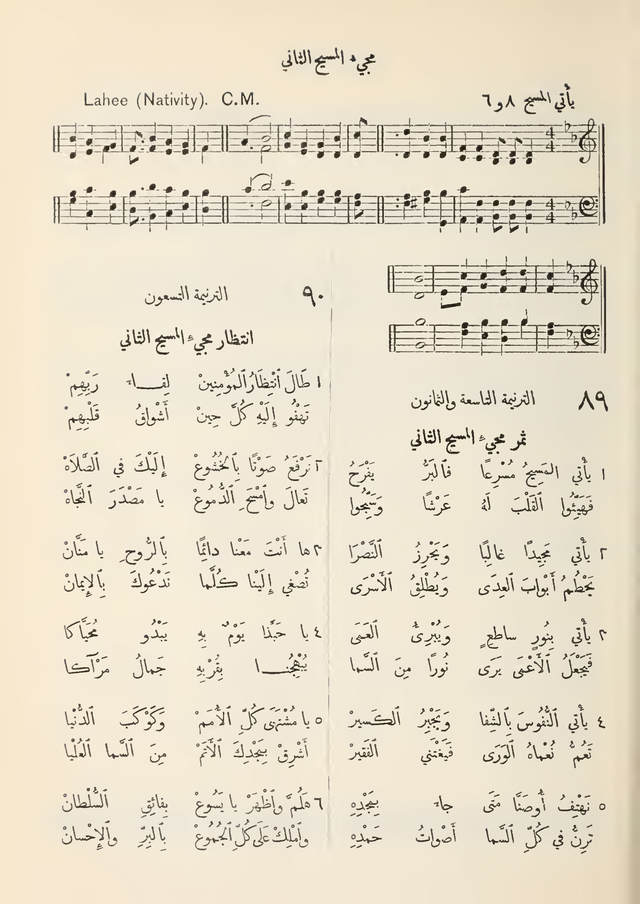 مجيء المسيح الثاني
يأتي المسيح ٨ و ٦
Lahee (Nativity). C.M.
٨٩ الترنيمة التاسعة والثمانون
ثمر مجيء المسيح الثاني
١ يأتي المَسِيحُ مُسْرِعًا فَالبَرُّ يَفْرَحُ
فَهَيِّئُوا القَلْبَ لَهُ عَرْشًا وَسَبِّحُوا
٢ يأتي مَجِيدًا غالِبًا وَيَحْرِزُ النَّصْرَا
يَحْطِمُ أَبْوابَ العِدَى وَيُطْلِقُ الأَسْرَى
٣ يأتي بِنُورٍ ساطعٍ وَيُبْرِئُ العَمَى
فَيَجْعَلُ الأَعْمَى يَرَى نُورًا مِنَ السَّما
٤ يأتي النُّفُوسَ بِالشِّفا وَيَجْبِرُ الكَسِيرْ
تَعُمُّ نُعْماهُ الوَرَى فَيَغْتَنِي الفَقِيرْ
٥ نَهْتِفُ أُوصَنَّا مَتَى جاءَ بِمَجْدِهِ
تَرِنُّ في كُلِّ السَّما أَصْواتُ حَمْدِهِ
٩٠ الترنيمة التسعون
انتظار مجيء المسيح الثاني
١ طَالَ انْتِظَارُ المُؤْمِنِينْ لِقاءَ رَبِّهِمْ
تَهْفُو إِلَيْهِ كُلَّ حِينْ أَشْواقُ قَلْبِهِمْ
٢ نَرْفَعُ صَوْتًا بِالخُشُوعْ إِلَيْكَ فِي الصَّلاَهْ
تَعالَ وَامْسَحِ الدُّمُوعْ يا مَصْدَرَ النَّجاهْ
٣ ها أَنْتَ مَعْنا دائِمًا بِالرُّوحِ يا مَنَّانْ
تُصْغِي إِلَيْنا كُلَّما نَدْعُوكَ بِالإِيمانْ
٤ يا حَبَّذا يَوْمٌ بِهِ يَبْدُو مُحَيَّاكا
يُبْهِجُنا بِقُرْبِهِ جَمالُ مَرْآكا
٥ يا مُشْتَهَى كُلِّ الأُمَمْ وَكَوْكَبَ الدُّنْيا
أَشْرِقْ بِمَجْدِكَ الأَتَمّْ مِنَ السَّما العُلْيا
٦ هَلُمَّ وَاظْهَرْ يا يَسُوعْ بِفائِقِ السُّلْطانْ
وَامْلِكْ عَلَى كُلِّ الجُمُوعْ بِالبِرِّ والإِحْسانْ